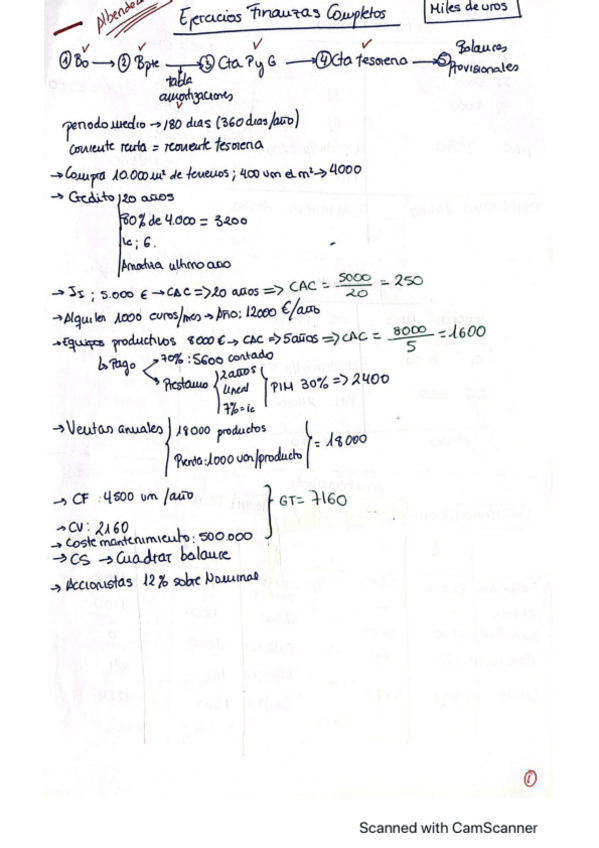 Ejercicios Finanzas Completos
Miles de uros
① Bo → ② Bpre → ③ Cta PyG → ④ Cta tesoreria → ⑤ Balances Provisionales
tabla
amortizaciones
periodo medio → 180 dias (360 dias/año)
corriente renta = recorriente tesoreria
→ Compra 10.000m² de terrenos ; 400 um el m² → 4000
→ Credito 20 años
80% de 4.000 = 3200
ic ; 6.
Amortiza ultimo año
→ II ; 5.000 € → CAC => 20 años => CAC = 5000/20 = 250
→ Alquiler 1000 euros/mes → Año: 12000 €/año
→ Equipos productivos 8000 € → CAC => 5 años => CAC = 8000/5 = 1600
↳ Pago
70% : 5600 contado
Prestamo
2 años
lineal
7% = ic
PIM 30% => 2400
→ Ventas anuales
18000 productos
Pventa: 1000 um/producto
= 18000
→ CF : 4500 um /año
GT = 7160
→ CV : 2160
→ Coste mantenimiento : 500.000
→ CS → Cuadrar balance
→ Accionistas 12% sobre Nominal
①
Scanned with CamScanner